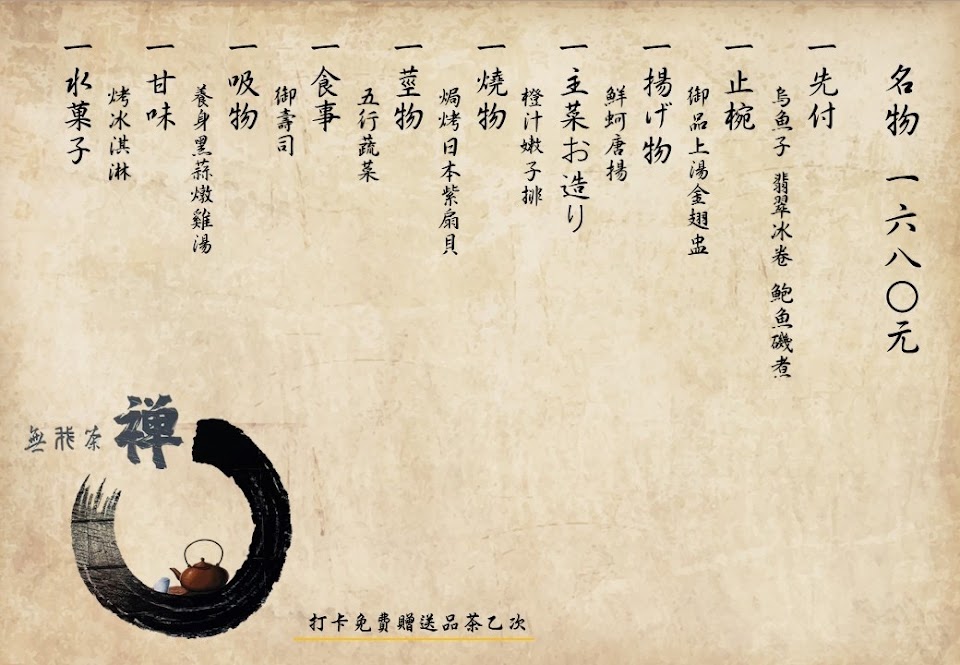 名物 一六八〇元
一先付
烏魚子 翡翠冰卷 鮑魚磯煮
一止椀
御品上湯金翅盅
一揚げ物
鮮蚵唐揚
一主菜お造り
橙汁嫩子排
一燒物
焗烤日本紫扇貝
一莖物
五行蔬菜
一食事
御壽司
一吸物
養身黑蒜燉雞湯
一甘味
烤冰淇淋
一水菓子
無非茶
禅
打卡免費贈送品茶乙次